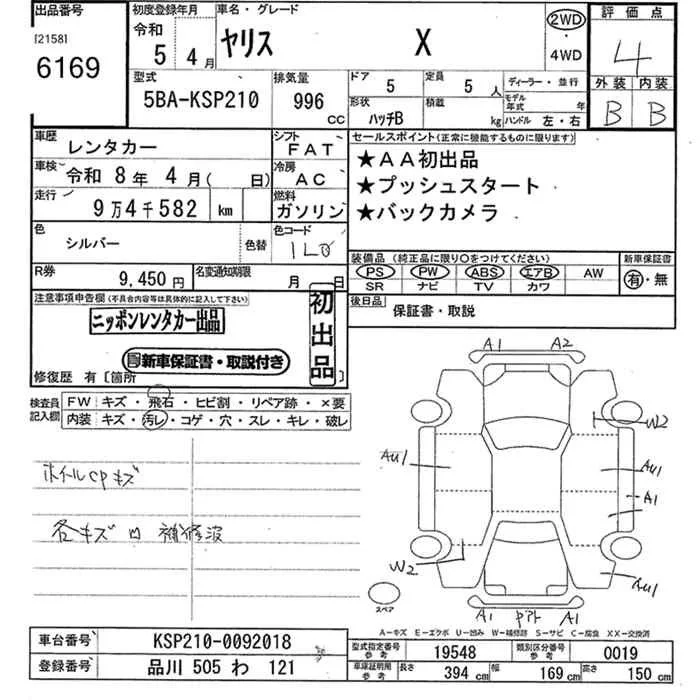 出品番号 初度登録年月 車名・グレード 評価点
[2158] 令和 5年 4月 ヤリス X 2WD 4
6169 4WD
型式 排気量 ドア 5 定員 5人 ディーラー・並行 外装 内装
5BA-KSP210 996 CC 形状 ハッチB 積載 kg モデル年式 年 B B
ハンドル 左・右
車歴 レンタカー シフト FAT セールスポイント(正常に機能するものに限ります)
車検 令和 8年 4月( 日) 冷房 AC ★AA初出品
走行 9万4千582 km 燃料 ガソリン ★プッシュスタート
★バックカメラ
色 シルバー 色替 色コード 1L0
装備品 (純正品に限り〇をつけてください) 新車保証書
PS PW ABS エアB AW 有・無
SR ナビ TV カワ
R券 9,450円 名変通知期限 月 日
後日品 保証書・取説
注意事項申告欄(不具合内容等は具体的に記入して下さい)
ニッポンレンタカー出品 初出品
新車保証書・取説付き
修復歴 有〔箇所 〕
検査員記入欄 FW キズ・飛石・ヒビ割・リペア跡・×要
内装 キズ・汚レ・コゲ・穴・スレ・キレ・破レ
ホイルCPキズ
各キズ凹補修波
A1 A2
W2
AU1 AU1
A1
W2 AU1
スペア
A1 A1
A-キズ E-エクボ U-凹み W-補修跡 S-サビ C-腐食 XX-交換済
車台番号 KSP210-0092018 型式指定番号 参考 19548 類別区分番号 参考 0019
登録番号 品川 505 わ 121 車庫証明用 参考 長さ 394 cm 幅 169 cm 高さ 150 cm